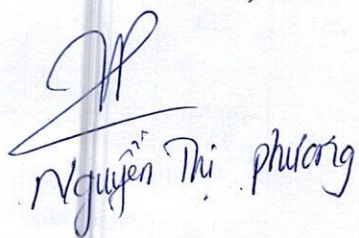 Nguyễn Thị phương